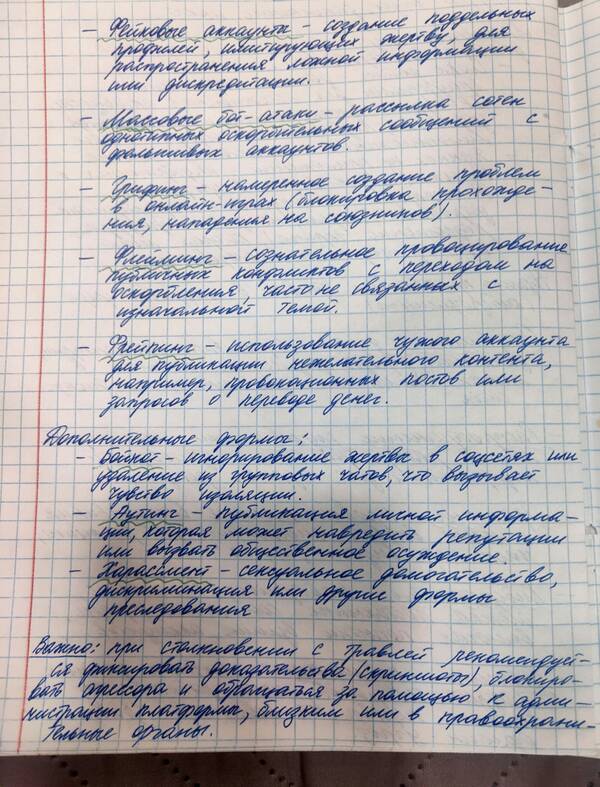 – Фейковые аккаунты – создание поддельных
профилей, имитирующих жертву, для
распространения ложной информации
или дискредитации.
– Массовые бот-атаки – рассылка сотен
однотипных оскорбительных сообщений с
фальшивых аккаунтов.
– Грифинг – намеренное создание проблем
в онлайн-играх (блокировка прохожде-
ния, нападения на союзников).
– Флейминг – сознательное провоцирование
публичных конфликтов с переходом на
оскорбления, часто не связанных с
изначальной темой.
– Фрейпинг – использование чужого аккаунта
для публикации нежелательного контента,
например, провокационных постов или
запросов о переводе денег.
Дополнительные формы:
– Бойкот – игнорирование жертвы в соцсетях или
удаление из групповых чатов, что вызывает
чувство изоляции.
– Аутинг – публикация личной информа-
ции, которая может навредить репутации
или вызвать общественное осуждение.
– Харассмент – сексуальное домогательство,
дискриминация или другие формы
преследования
Важно: при столкновении с травлей рекомендует-
ся фиксировать доказательства (скриншоты), блокиро-
вать агрессора и обращаться за помощью к адми-
нистрации платформы, близким или в правоохрани-
тельные органы.